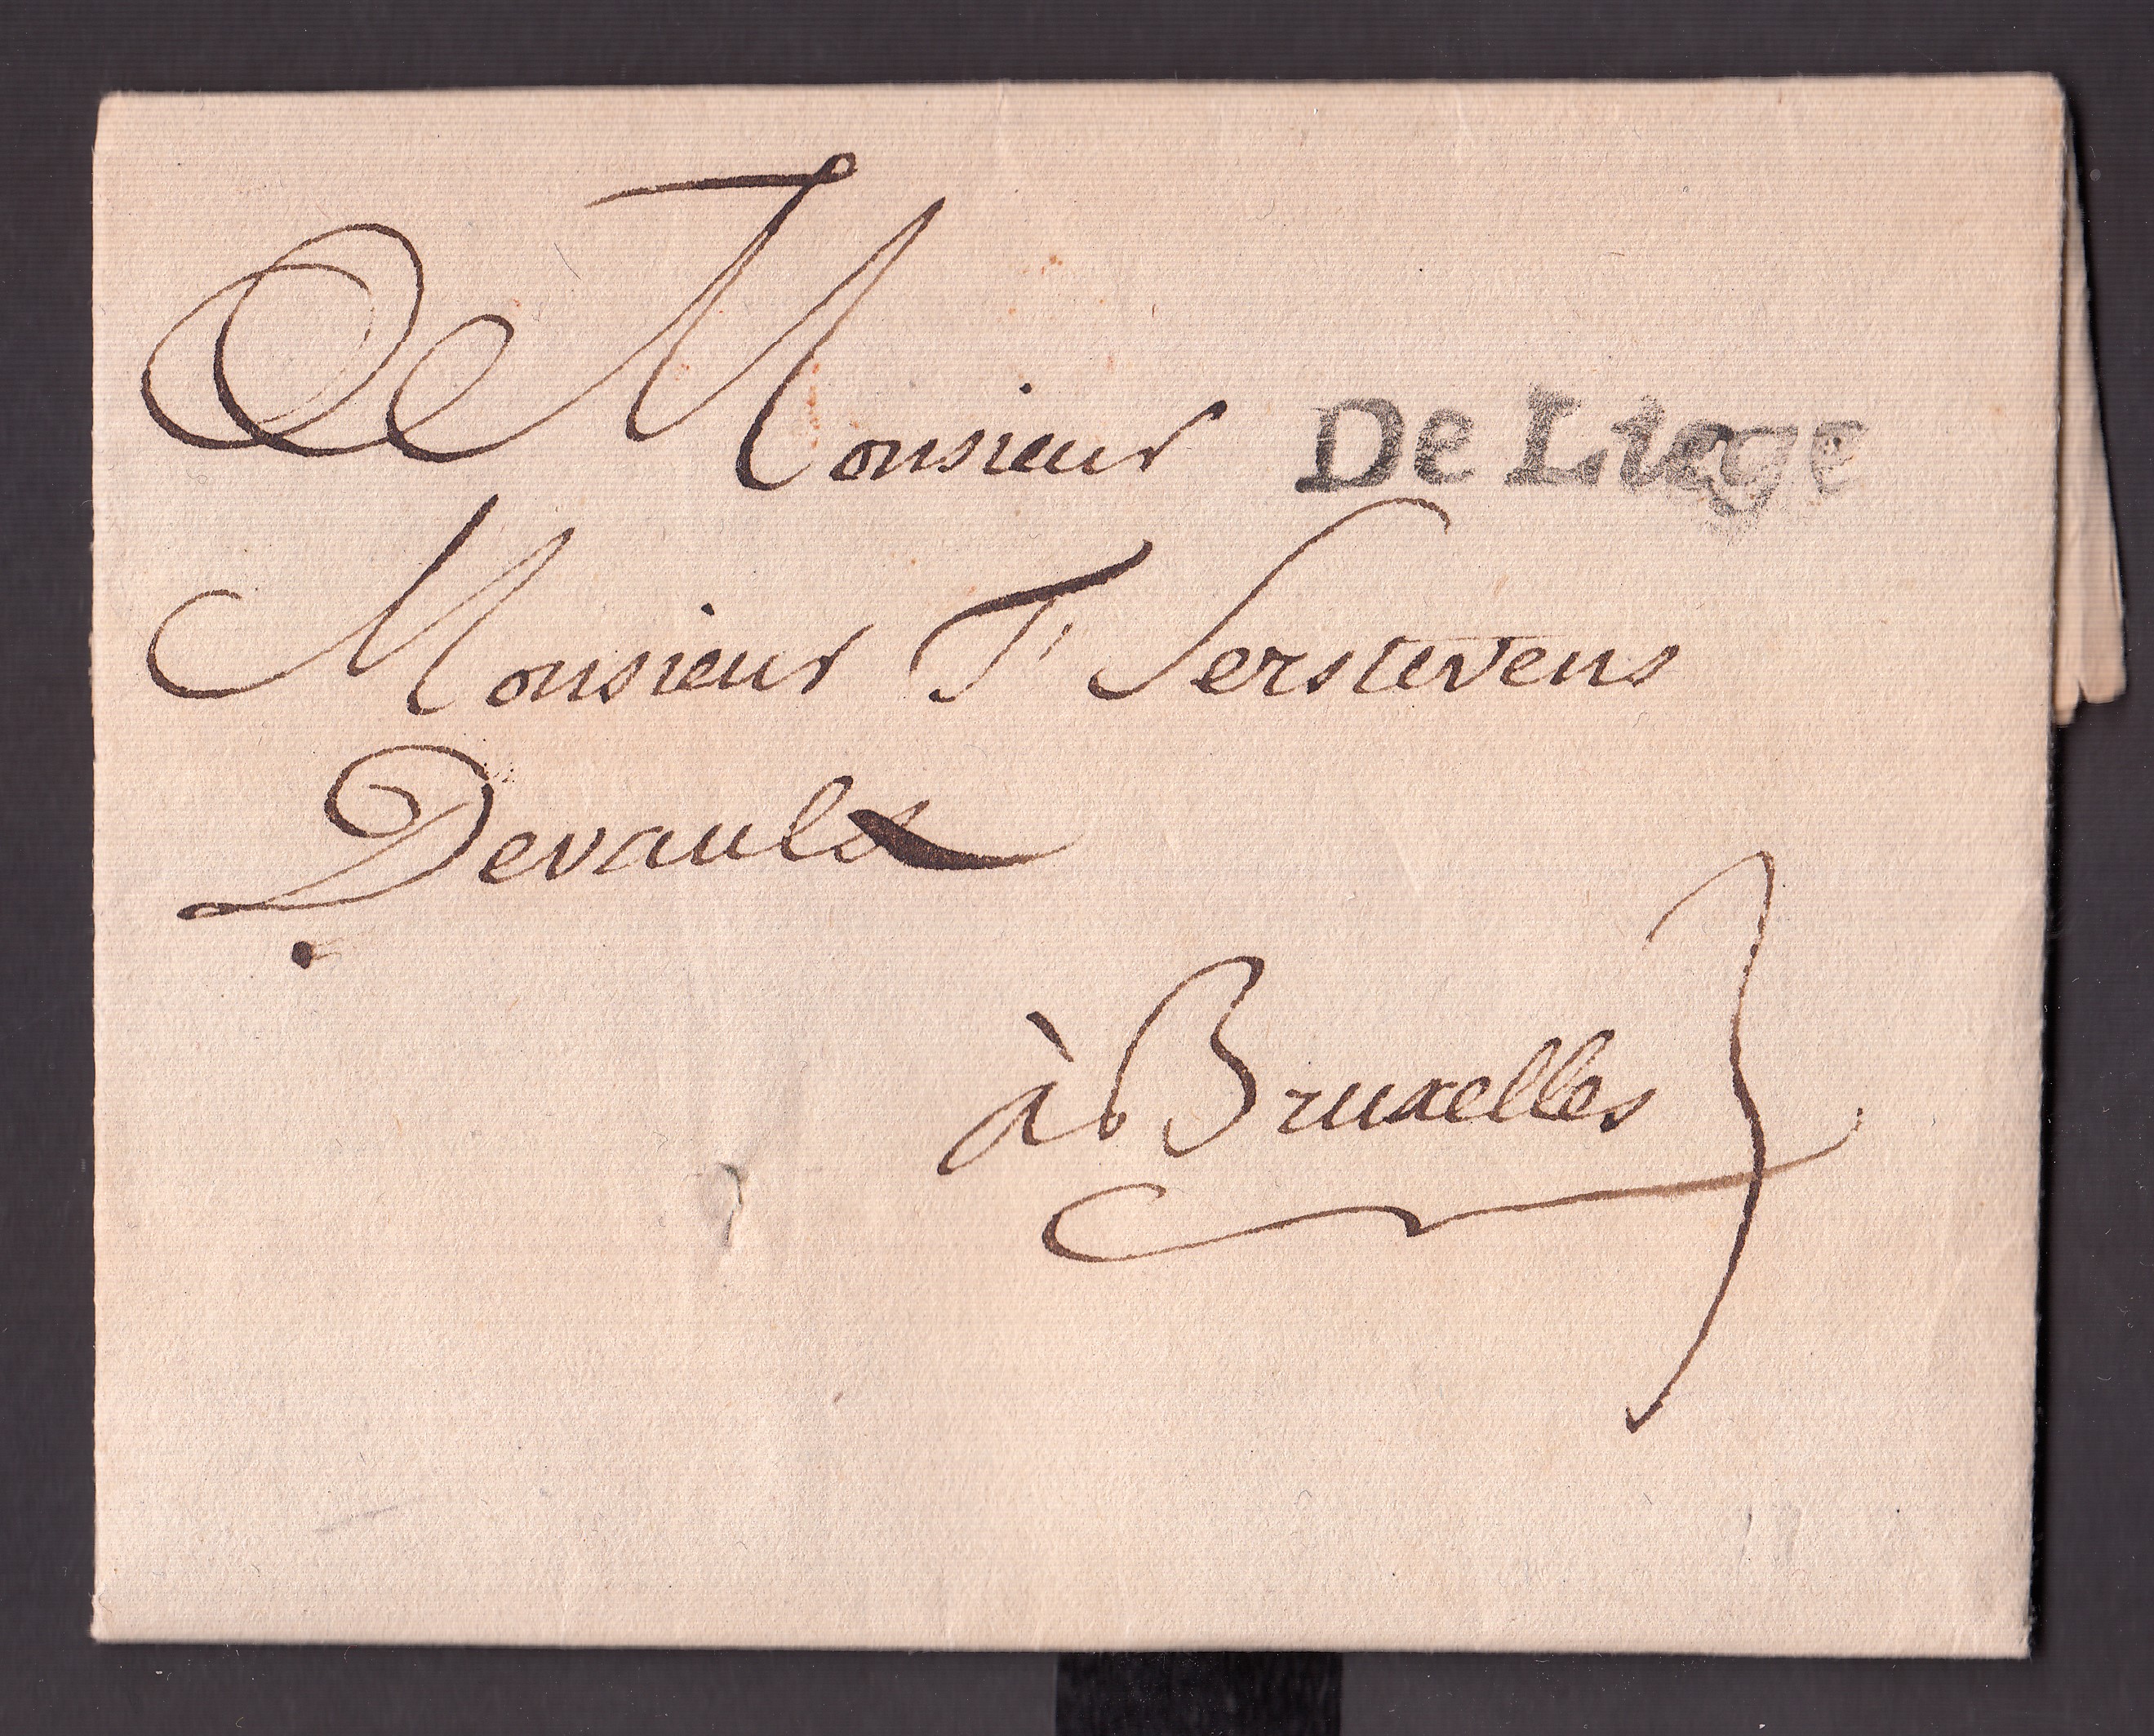 A Monsieur De Liege
Monsieur F Serstevens
Devaulx
à Bruxelles